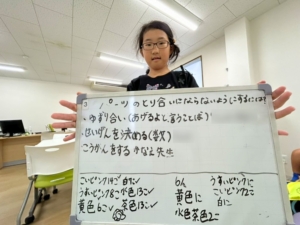 パーツのとり合いにならないようにするには
・ゆずり合い(あげるよと言うことば)
・せいげんを決める(数)
・こうかんをする かなえ先生
こいピンク 白
うすいピンク 水色
黄色 茶色
りん うすいピンク
黄色に こいピンク2こ
水色茶色2こ 白に